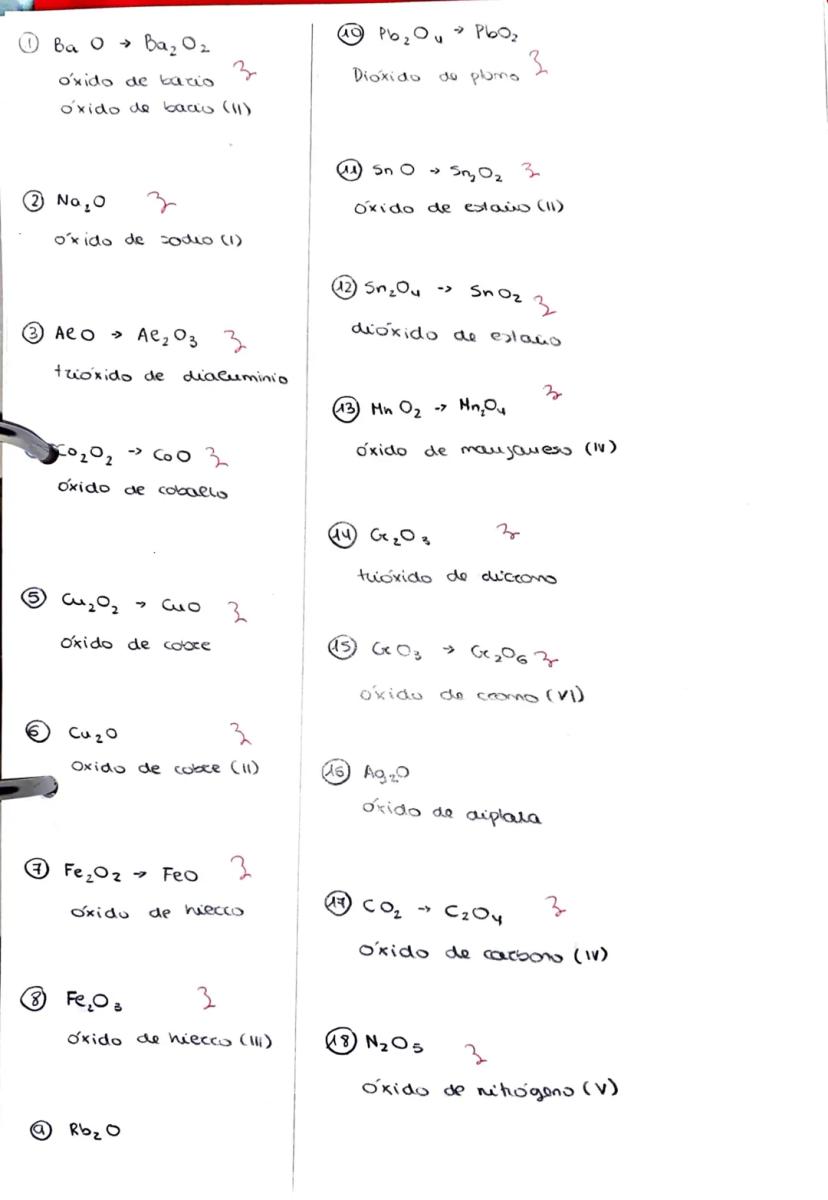 ① Ba O → Ba₂O₂
óxido de bario
óxido de bario (II)
② Na₂O
óxido de sodio (I)
③ AlO → Al₂O₃
trióxido de dialuminio
Co₂O₂ → CoO
óxido de cobalto
⑤ Cu₂O₂ → CuO
óxido de cobre
⑥ Cu₂O
Oxido de cobre (II)
⑦ Fe₂O₂ → FeO
óxido de hierro
⑧ Fe₂O₃
óxido de hierro (III)
⑨ Rb₂O
⑩ Pb₂O₄ → PbO₂
Dióxido de plomo
⑪ SnO → Sn₂O₂
óxido de estaño (II)
⑫ Sn₂O₄ → SnO₂
dióxido de estaño
⑬ MnO₂ → Mn₂O₄
óxido de manganeso (IV)
⑭ Cr₂O₃
trióxido de dicromo
⑮ CrO₃ → Cr₂O₆
óxido de cromo (VI)
⑯ Ag₂O
óxido de diplata
⑰ CO₂ → C₂O₄
óxido de carbono (IV)
⑱ N₂O₅
óxido de nitrógeno (V)